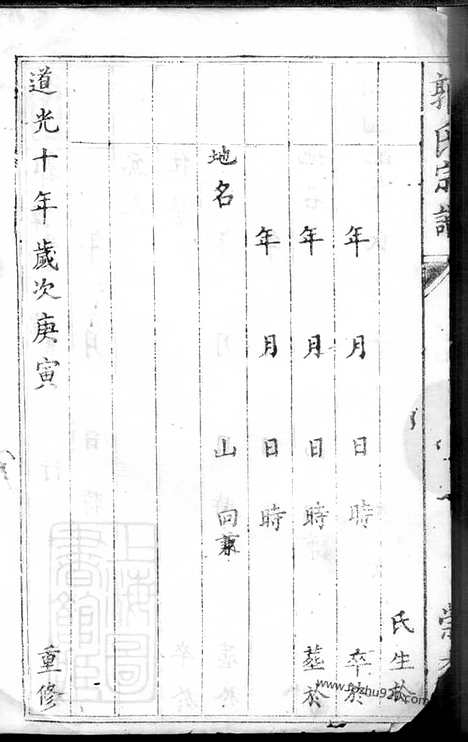 郭氏宗譜
氏生於
年 月 日 時 卒於
年 月 日 時 葬於
年 月 日 時
地名 山 向兼
道光十年歲次庚寅 重修
www.fozhu920.com